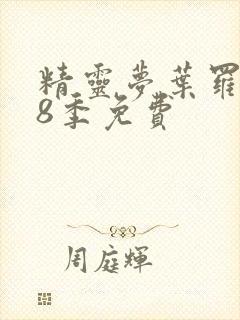 精靈夢葉羅
8季免費
周庭輝